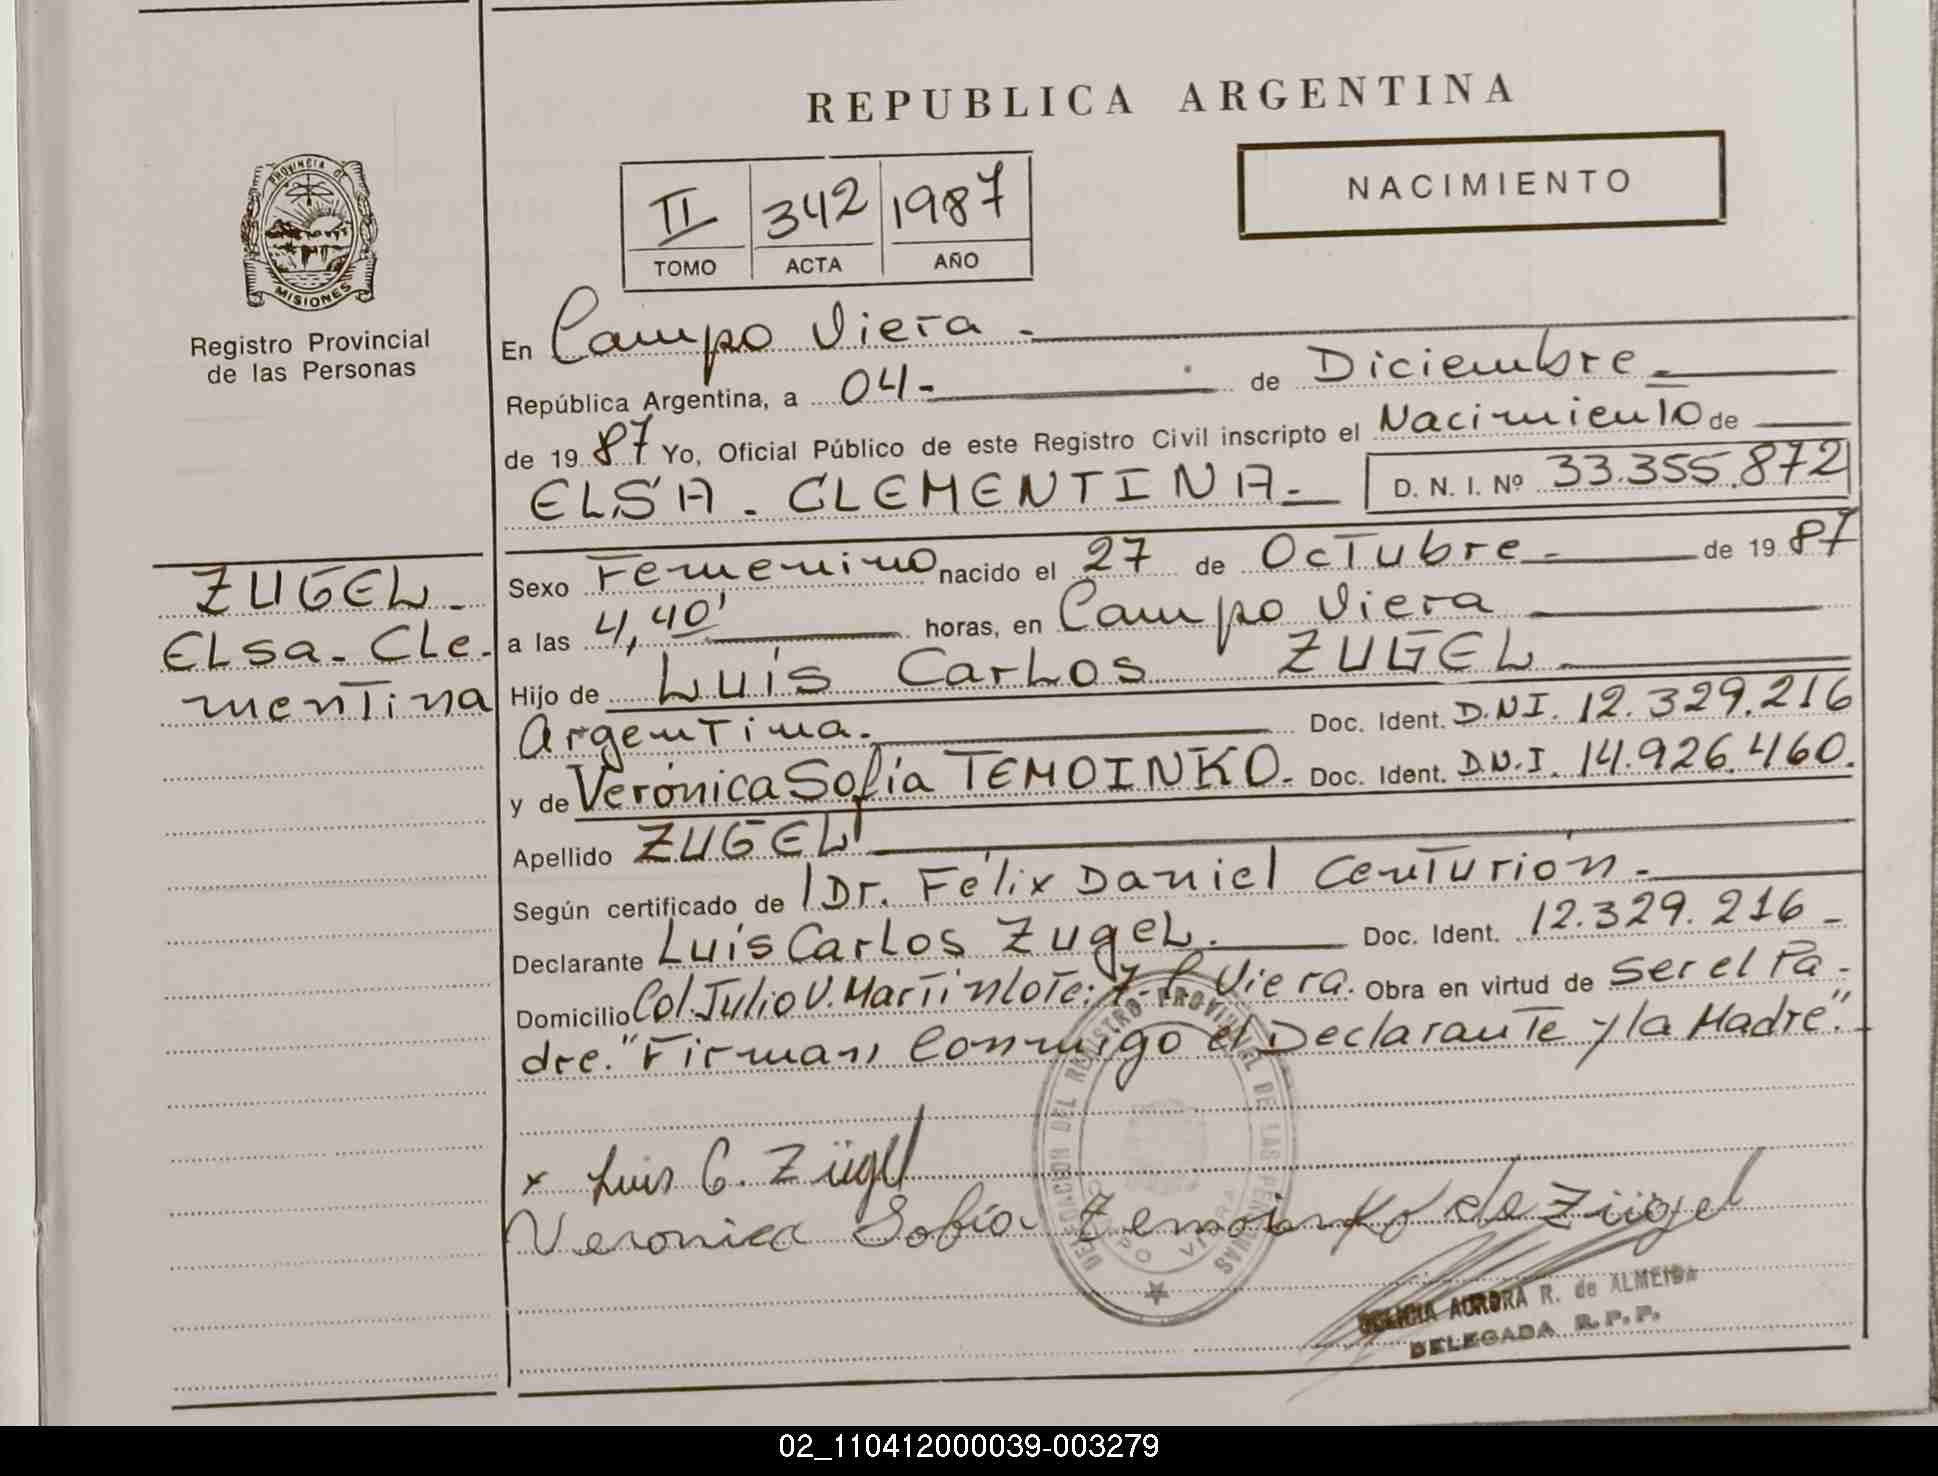 REPUBLICA ARGENTINA
NACIMIENTO
II 342 1987
TOMO ACTA AÑO
PROVINCIA DE
MISIONES
Registro Provincial
de las Personas
En Campo Viera -
República Argentina, a 04- de Diciembre -
de 19 87 Yo, Oficial Público de este Registro Civil inscripto el Nacimiento de
ELSA - CLEMENTINA - D. N. I. Nº 33.355.872
ZUGEL -
ELsa - Cle -
mentina
Sexo Femenino nacido el 27 de Octubre - de 19 87
a las 4,40' horas, en Campo Viera
Hijo de Luis Carlos ZUGEL -
Argentina. Doc. Ident. D.NI. 12.329.216
y de Verónica Sofía TEMOINKO. Doc. Ident. D.N.I. 14.926.460.
Apellido ZUGEL
Según certificado de Dr. Félix Daniel Centurión -
Declarante Luis Carlos Zugel. Doc. Ident. 12.329.216 -
Domicilio Col. Julio U. Martin Lote: 7- C. Viera. Obra en virtud de Ser el Pa -
dre. "Firman Conmigo el Declarante y la Madre".
DELEGACION DEL REGISTRO PROVINCIAL DE LAS PERSONAS
CAMPO VIERA
x Luis C. Zügel
Veronica Sofía Temoinko de Zügel
DELICIA AURORA R. de ALMEIDA
DELEGADA R.P.P.
02_110412000039-003279